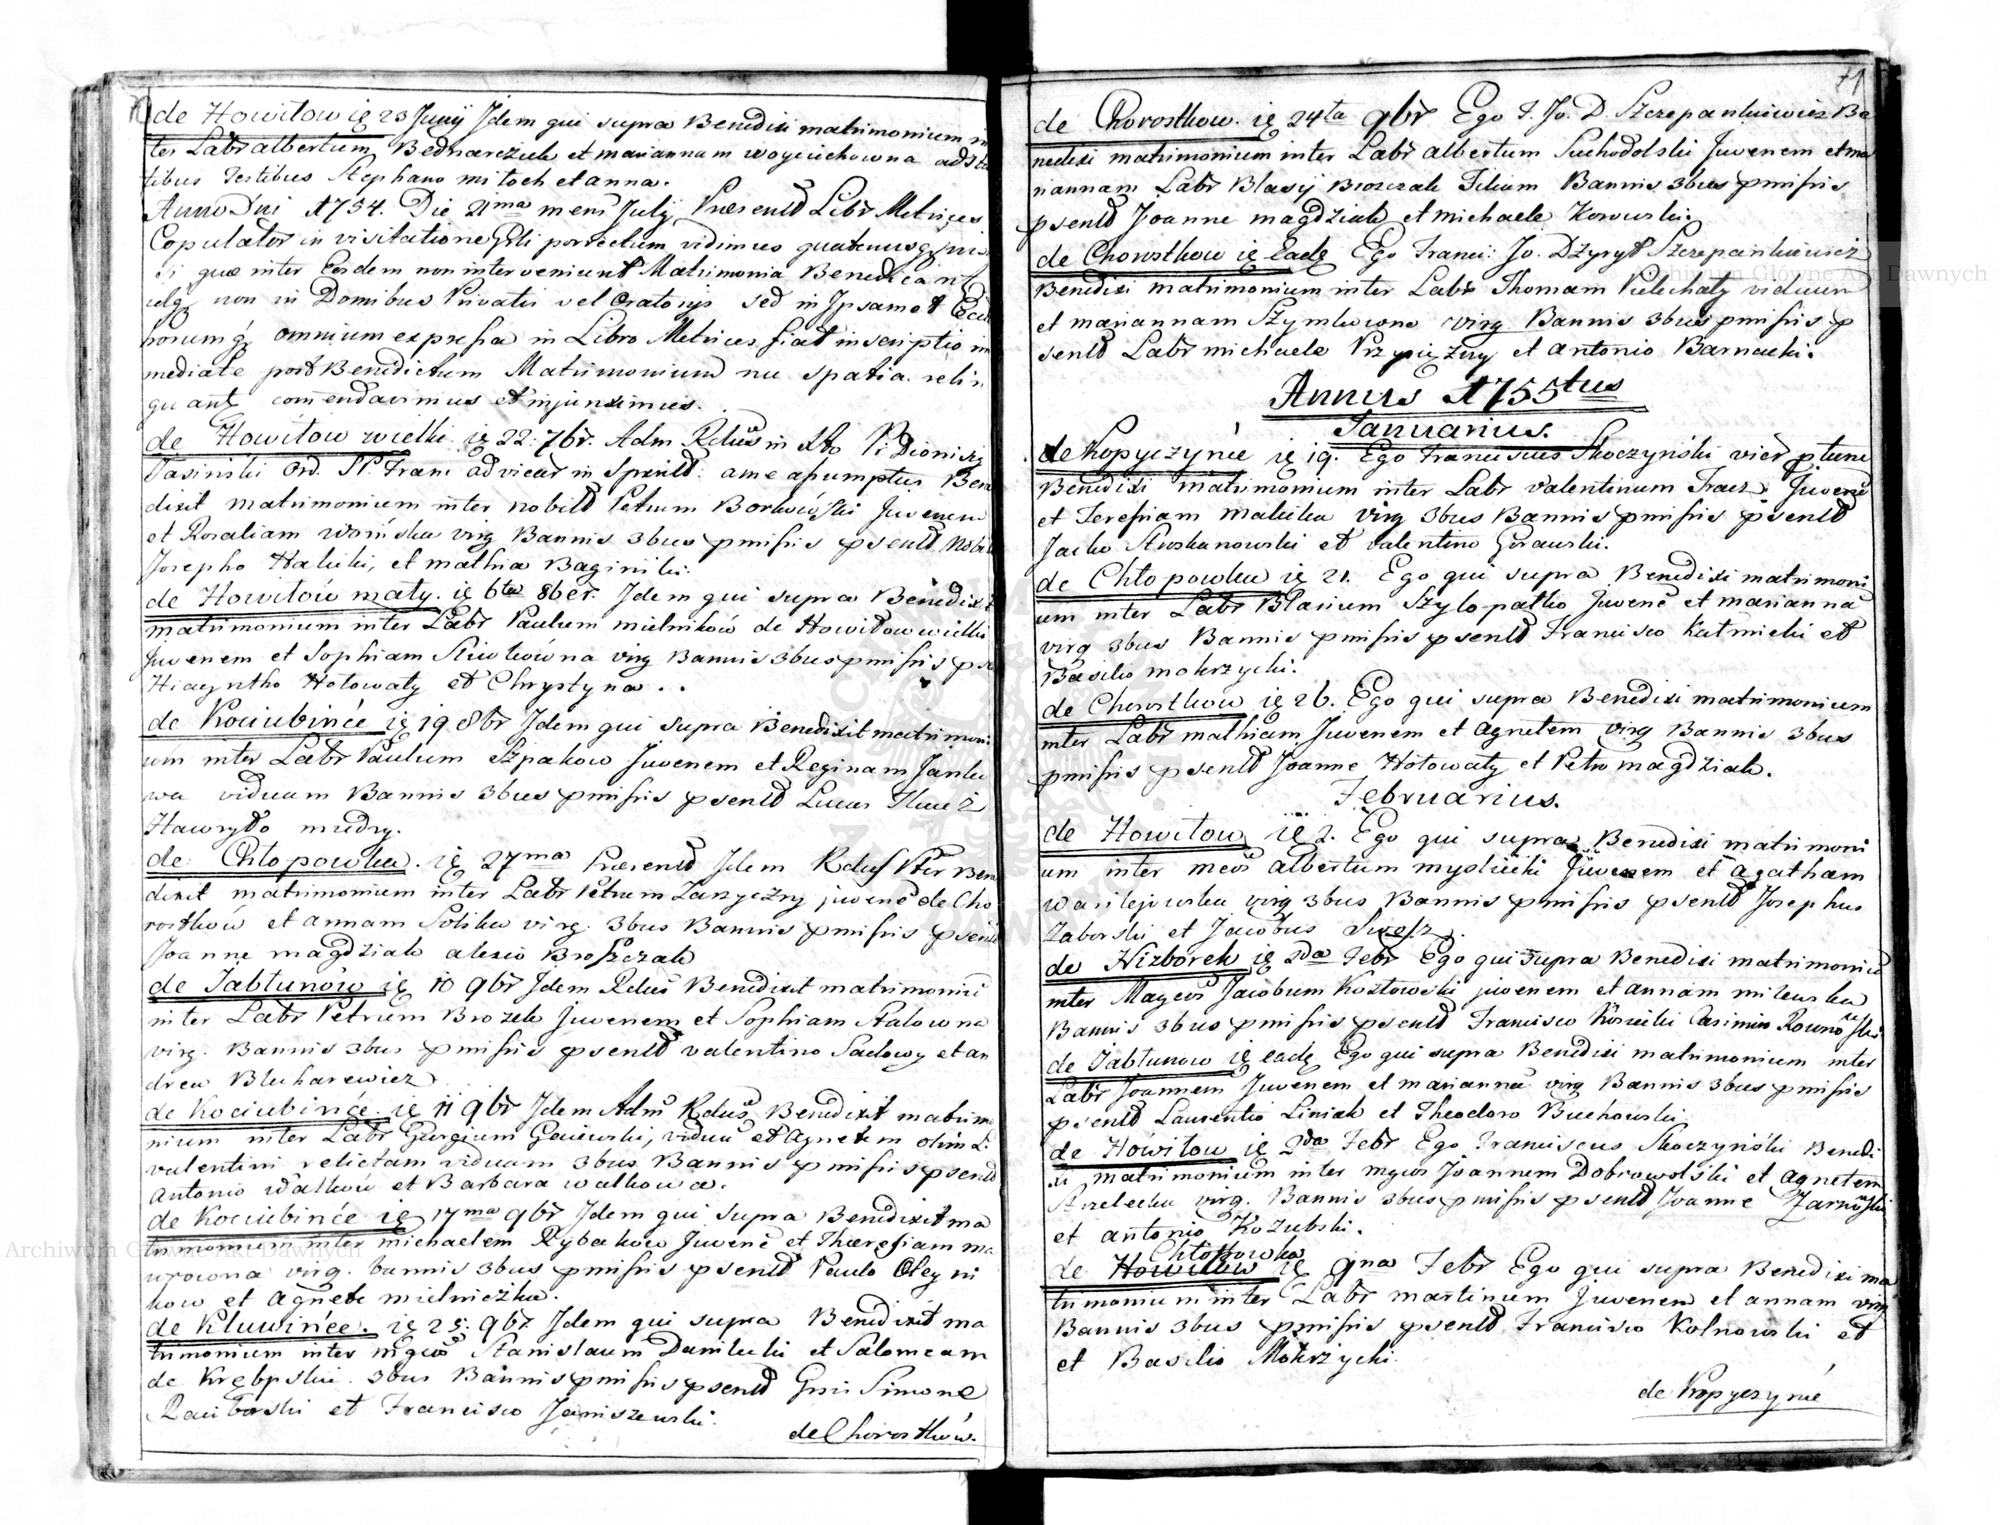 70
de Howiłow ię 23 Junij Jdem qui supra Benedixi matrimonium in
ter Labr albertum Bednarczuk et mariannam woyciechowna adsta
tibus Testibus Stephano mitoch et anna.
Anno Dni 1754. Die 21ma mens July, Præsentð Libr Metrices
Copulator in visitatione Grli porrectum vidimus quatenus
si quæ inter Eosdem non interveniunt Matrimonia Benedicant
idq non in Domibus Privatis vel Oratorijs sed in Jpsamet Eccl
horumq omnium expressa in Libro Metrices fiat inscriptio im
mediate post Benedictum Matrimonium nec spatia relin
quant comendavimus et injunximus.
de Howiłow wielki ię 22. 7br. Adm Rdus in Xto P. Dionisig
Jasinski Ord. St. Fran: ad vicar in Spirild: a me assumptus Bene
dixit matrimonium inter nobild Petrum Borkowski Juvenem
et Rosaliam wonska virg Bannis 3bus pmissis psentð Nobili
Josepho Halicki, et mathia Baginski.
de Howiłow mały. ię 6ta 8ber. Jdem qui supra Benedixit
matrimonium inter Labr Paulum mielnikow de Howiłow wielki
Juvenem et Sophiam Siwkowna virg Bannis 3bus pmissis pse
Hiacyntho Hołowaty et Chrystyna..
de Kociubińce ię 19 8br Jdem qui supra Benedixit matrimoni
um inter Labr Paulum Szpakow Juvenem et Reginam Janko
wa viduam Bannis 3bus pmissis psentð Lucas Tkacz
Hawryło mudry.
de Chłopowka. ię 27ma Præsentð Jdem Rdus Pter Bene
dixit matrimonium inter Labr Petrum Zaryczny juvenē de Cho
rostków et annam Solska virg. 3bus Bannis pmissis psentð
Joanne magdziak alexio Broszczak
de Jabłunów ię 10 9br Jdem Rdus Benedixit matrimoniū
inter Labr Petrum Brozek Juvenem et Sophiam Stałowna
virg. Bannis 3bus pmissis psentð valentino Sadowy et an
drea Blucharewicz
de Kociubińce. ię 11 9br Jdem Adm Rdus, Benedixit matrimo
nium inter Labr Georgium Gaiewski, viduū et Agnetem olim L.
valentini relictam viduam 3bus Bannis pmissis psentð
Antonio Walkow et Barbara walkowa.
de Kociubińce ię 17ma 9br Jdem qui supra Benedixit ma
trimonium inter michaelem Rybakow Juvenē et Theresiam ma
urowna virg. bannis 3bus pmissis psentð Paulo Oleyni
kow et Agnete mielniczka.
de Kluwińce. ię 25. 9br. Jdem qui supra Benedixit ma
trimonium inter mgcos Stanislaum Danilecki et Salomeam
de Krębpskie. 3bus Bannis pmissis psentð Gsii Simone
Raciborski et Francisco Janiszewski.
de Chorostków.
71
de Chorostkow. ię 24ta 9br Ego F. Jo. D. Szczepankiewicz Be
nedixi matrimonium inter Labr albertum Suchodolski Juvenem et ma
riannam Labr Blasij Broszczak Filiam Bannis 3bus pmissis
psentð Joanne magdziak et michaele Kowuski.
de Chorostkow ię Eadę Ego Franci: Jo. Dżyryt Szczepankiewicz
Benedixi matrimonium inter Labr Thomam Pielechaty viduum
et mariannam Szymkowna virg Bannis 3bus pmissis p
sentð Labr michaele Przysiężny et antonio Barnacki.
Annus 1755tus
Januarius.
de Kopyczyńce ię 19. Ego Franciscus Skoczyński vicēr ptunc
Benedixi matrimonium inter Labr valentinum Fracz Juvenē
et Teressiam malicka virg 3bus Bannis pmissis psentð
Jacko Struskanowski et valentino Gorawski.
de Chłopowka ię 21. Ego qui supra Benedixi matrimoni
um inter Labr Blasium Szyłopatko Juvenē et mariannā
virg 3bus Bannis pmissis psentð Francisco Katnicki et
Basilio mokrzycki.
de Chorostkow ię 26. Ego qui supra Benedixi matrimonium
inter Labr mathiam Juvenem et Agnetem virg Bannis 3bus
pmissis psentð Joanne Hołowaty et Petro magdziak.
Februarius.
de Howiłow ię 2. Ego qui supra Benedixi matrimoni
um inter mcos Albertum myslicki Juvenem et agatham
wasilejowska virg 3bus Bannis pmissis psentð Josephus
Zaborski et Jacobus Swesz.
de Hizborek ię 2da Febr Ego qui supra Benedixi matrimoniū
inter Magcos Jacobum Kozłowski juvenem et annam milewska
Bannis 3bus pmissis psentð Francisco Kosicki Casimiro Rownowski
de Jabłunow ię eadę Ego qui supra Benedixi matrimonium inter
Labr Joannem Juvenem et mariannā virg Bannis 3bus pmissis
psentð Laurentio Liniak et Theodoro Buchowski.
de Howiłow ię 2da Febr Ego Franciscus Skoczyński Benedi
xi matrimonium inter mgcos Joannem Dobrowolski et Agnetem
Strzelecka virg. Bannis 3bus pmissis psentð Joanne Zarnowski
et antonio Kozubski.
Chłopowka
de Howiłow ię 9na Febr Ego qui supra Benedixi ma
trimonium inter Labr martinum Juvenem et annam virg
Bannis 3bus pmissis psentð Francisco Kolnowski et
et Basilio Mokrzycki.
de Kopyczyńcē
Archiwum Główne Akt Dawnych
Archiwum Główne Akt Dawnych